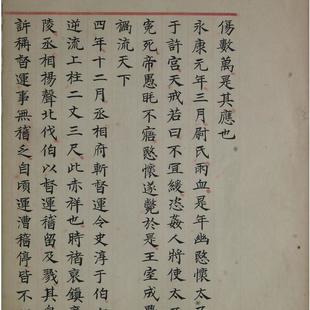 傷數萬是其應也
永康元年三月尉氏雨血是年幽愍懷太子
于許宮天戒若曰不宜緩恣姦人將使太子
冤死帝愚眊不寤愍懷遂斃於是王室成釁
禍流天下
四年十二月丞相府斬督運令史淳于伯血
逆流上柱二丈三尺此赤祥也時褚裒鎮廣
陵丞相揚聲北伐伯以督運稽留及戮其息
訴稱督運事無稽乏自頃運漕稽停皆不